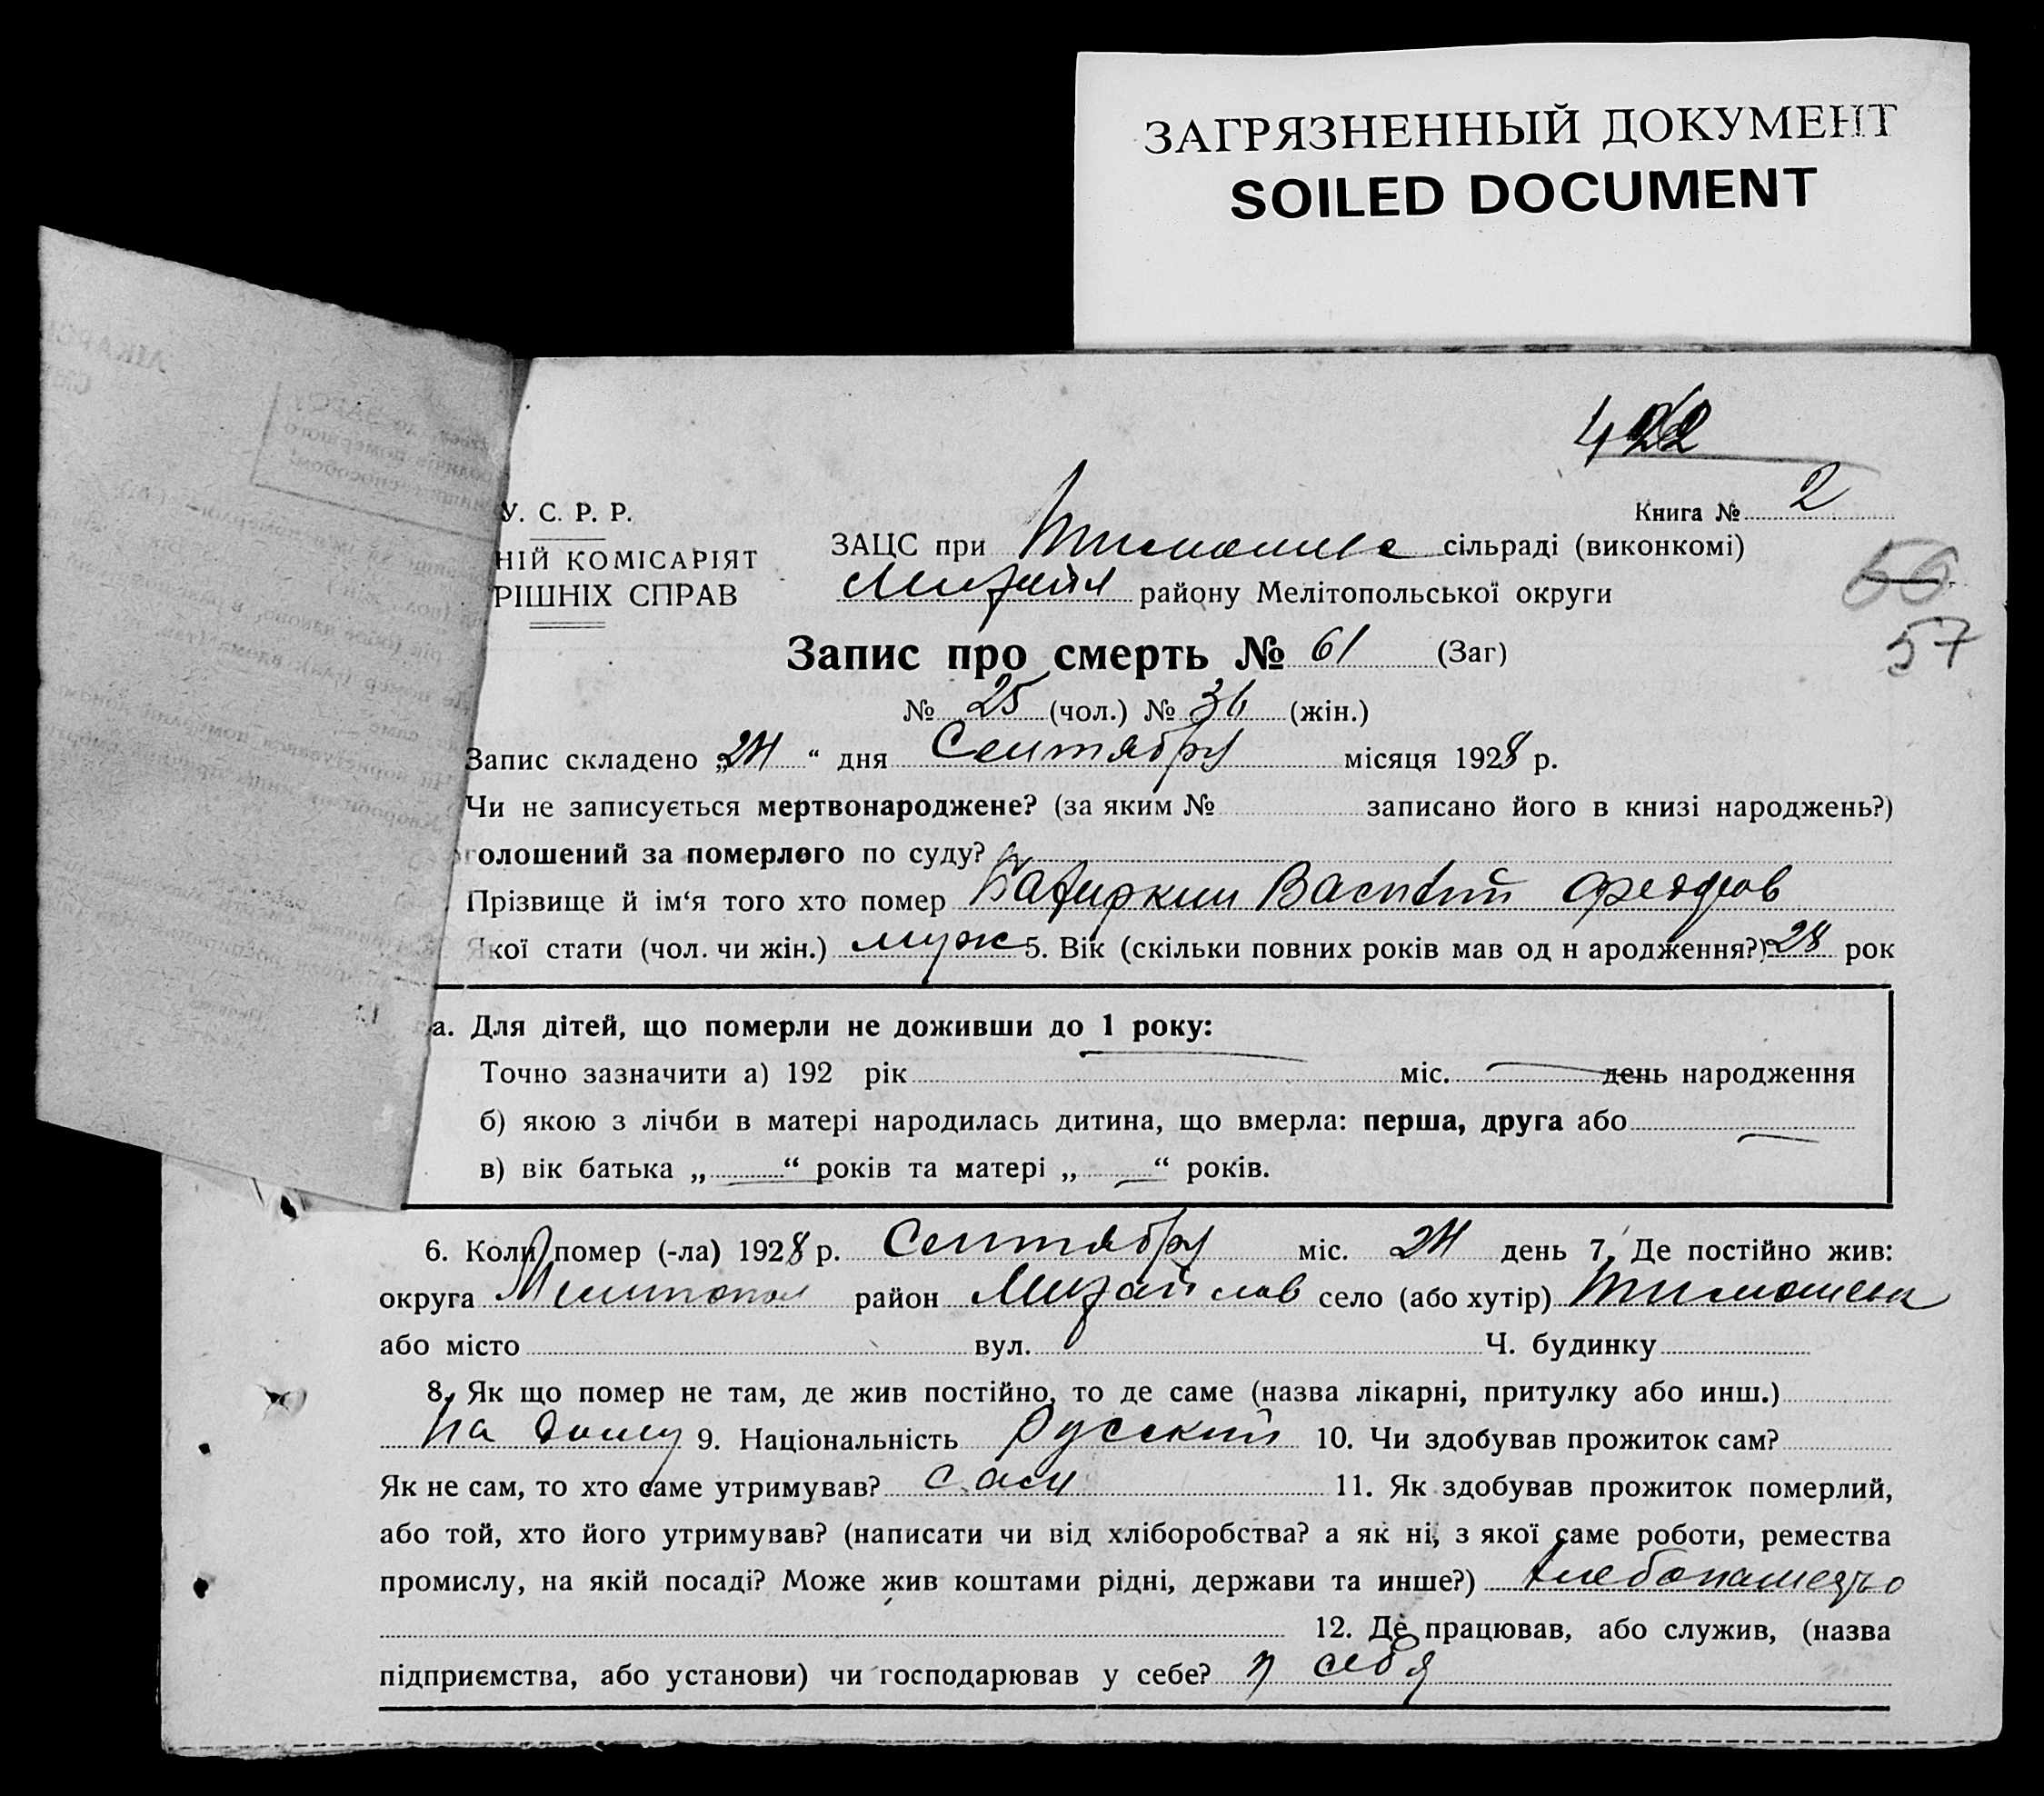 ЗАГРЯЗНЕННЫЙ ДОКУМЕНТ
SOILED DOCUMENT
422
У. С. Р. Р.
Книга № 2
НІЙ КОМІСАРІЯТ
ЗАЦС при сільраді (виконкомі)
РІШНІХ СПРАВ
району Мелітопольської округи
56
57
Запис про смерть № 61 (Заг)
№ 25 (чол.) № 36 (жін.)
Запис складено „24“ дня Сентября місяця 1928 р.
Чи не записується мертвонароджене? (за яким № записано його в книзі народжень?)
голошений за померлого по суду?
Прізвище й ім‘я того хто помер Василий Федоров
Якої стати (чол. чи жін.) муж 5. Вік (скільки повних років мав од н ародження?) 28 рок
а. Для дітей, що померли не доживши до 1 року:
Точно зазначити а) 192 рік міс. день народження
б) якою з лічби в матері народилась дитина, що вмерла: перша, друга або
в) вік батька „ “ років та матері „ “ років.
6. Коли помер (-ла) 1928 р. Сентября міс. 24 день 7. Де постійно жив:
округа Мелитопол район Михайлов село (або хутір) Тимошевк
або місто вул. Ч. будинку
8. Як що помер не там, де жив постійно, то де саме (назва лікарні, притулку або инш.)
На дому 9. Національність Русский 10. Чи здобував прожиток сам?
Як не сам, то хто саме утримував? сам 11. Як здобував прожиток померлий,
або той, хто його утримував? (написати чи від хліборобства? а як ні, з якої саме роботи, ремества
промислу, на якій посаді? Може жив коштами рідні, держави та инше?)
12. Де працював, або служив, (назва
підприємства, або установи) чи господарював у себе? у себя